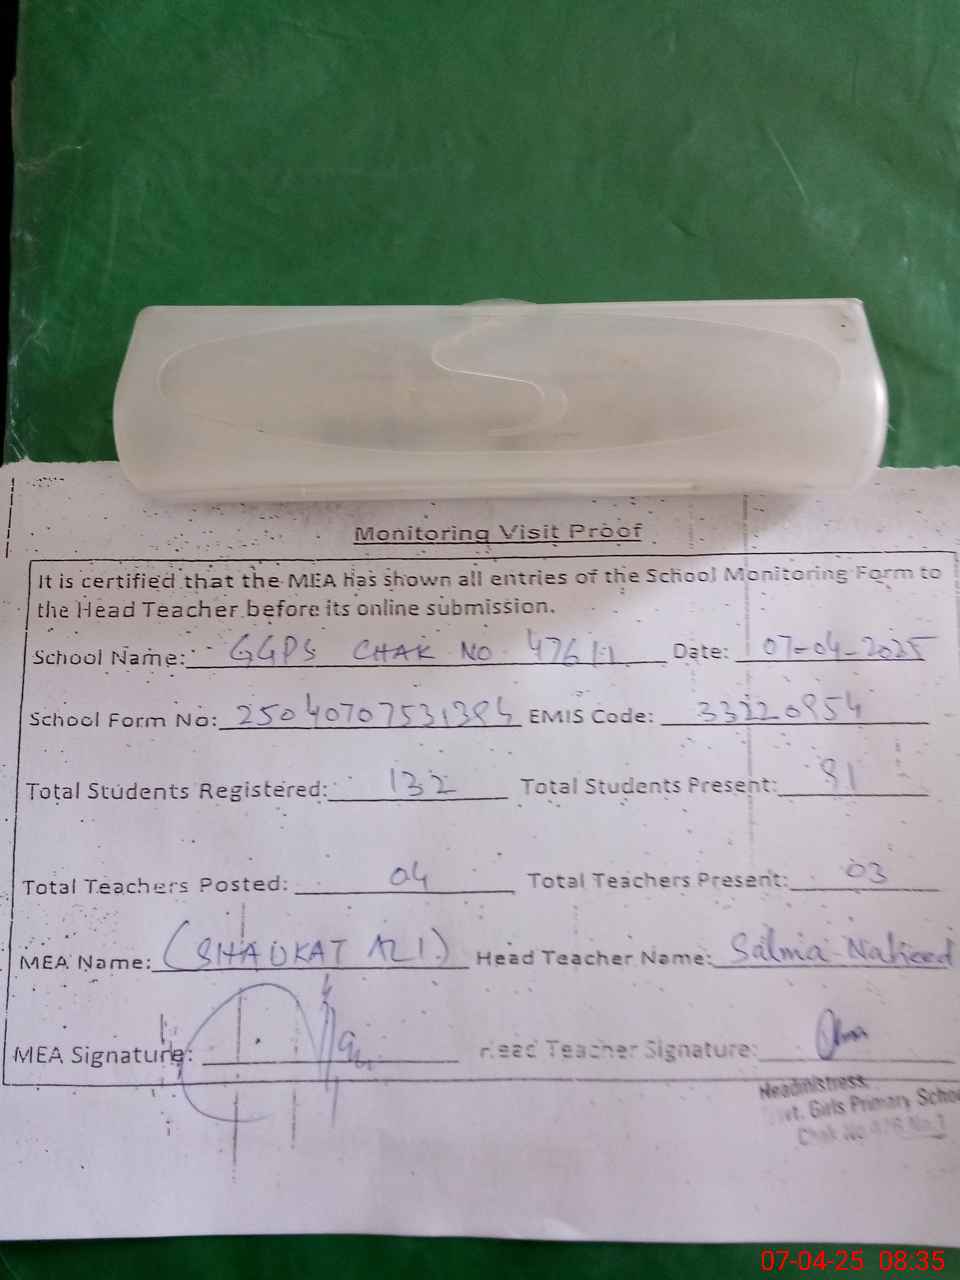 Monitoring Visit Proof
It is certified that the MEA has shown all entries of the School Monitoring Form to
the Head Teacher before its online submission.
School Name: GGPS CHAK NO. 476/1 Date: 07-04-2025
School Form No: 25040707531384 EMIS Code: 33220854
Total Students Registered: 132 Total Students Present: 91
Total Teachers Posted: 04 Total Teachers Present: 03
MEA Name: (SHAUKAT ALI) Head Teacher Name: Salma Naheed
MEA Signature: Head Teacher Signature:
Headmistress
Govt. Girls Primary School
Chak No 476 No.1
07-04-25 08:35